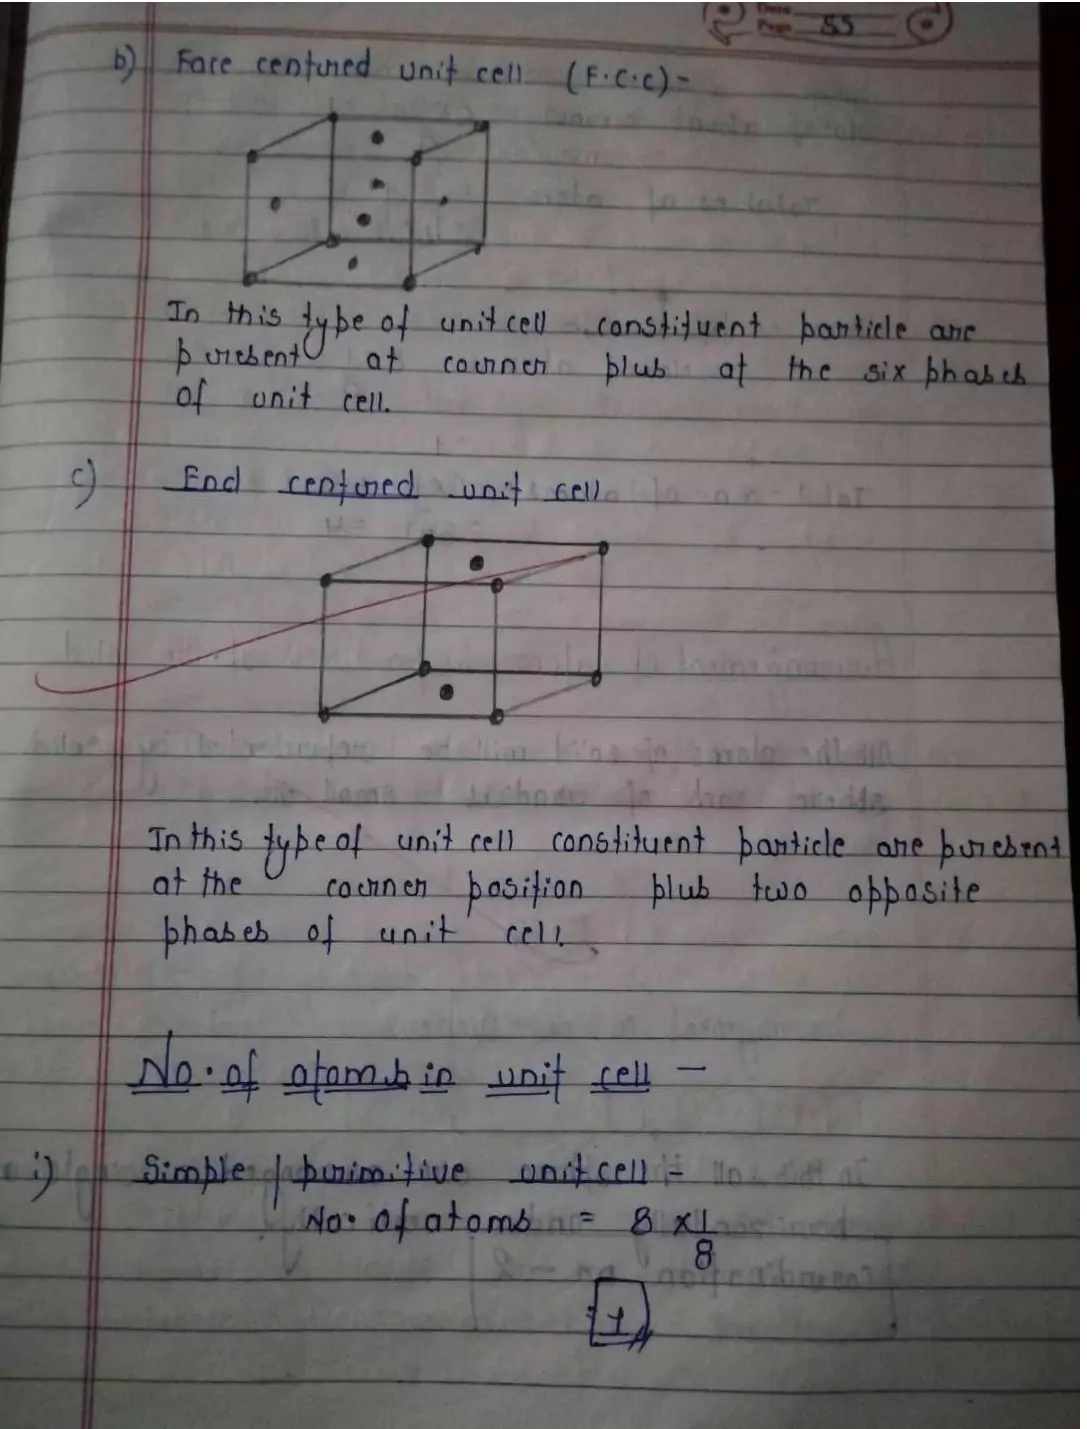 Date
Page 55
b) Face centured unit cell (F.C.C) -
In this type of unit cell constituent particle are
puresent at courner plus at the six phases
of unit cell.
c) End centured unit cell
In this type of unit cell constituent particle are puresent
at the courner position plus two opposite
phases of unit cell.
No. of atoms in unit cell -
i) Simple / purimitive unit cell =
No. of atoms = 8 x 1/8
= 1